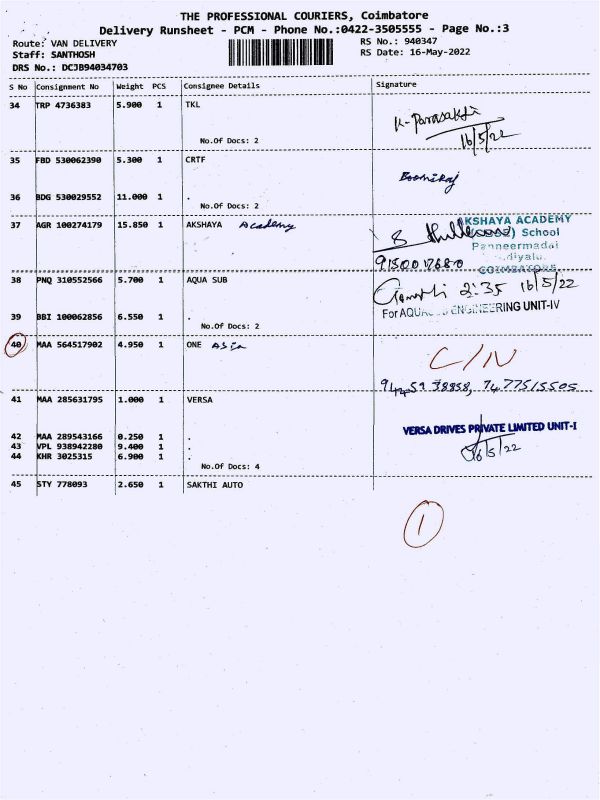 THE PROFESSIONAL COURIERS, Coimbatore
Delivery Runsheet - PCM - Phone No.:0422-3505555 - Page No.:3
Route: VAN DELIVERY RS No.: 940347
Staff: SANTHOSH RS Date: 16-May-2022
DRS No.: DCJB94034703
S No Consignment No Weight PCS Consignee Details Signature
34 TRP 4736383 5.900 1 TKL
K. Parasakthi
16/5/22
No.Of Docs: 2
35 FBD 530062390 5.300 1 CRTF
Boomiraj
36 BDG 530029552 11.000 1 .
No.Of Docs: 2
37 AGR 100274179 15.850 1 AKSHAYA Academy
AKSHAYA ACADEMY
School
Panneermadai
COIMBATORE
38 PNQ 310552566 5.700 1 AQUA SUB
2:35 16/5/22
For AQUA ENGINEERING UNIT-IV
39 BBI 100062856 6.550 1 .
No.Of Docs: 2
40 MAA 564517902 4.950 1 ONE Asia
C/N
7477515505
41 MAA 285631795 1.000 1 VERSA
VERSA DRIVES PRIVATE LIMITED UNIT-I
16/5/22
42 MAA 289543166 0.250 1 .
43 VPL 938942280 9.400 1 .
44 KHR 3025315 6.900 1 .
No.Of Docs: 4
45 STY 778093 2.650 1 SAKTHI AUTO
1